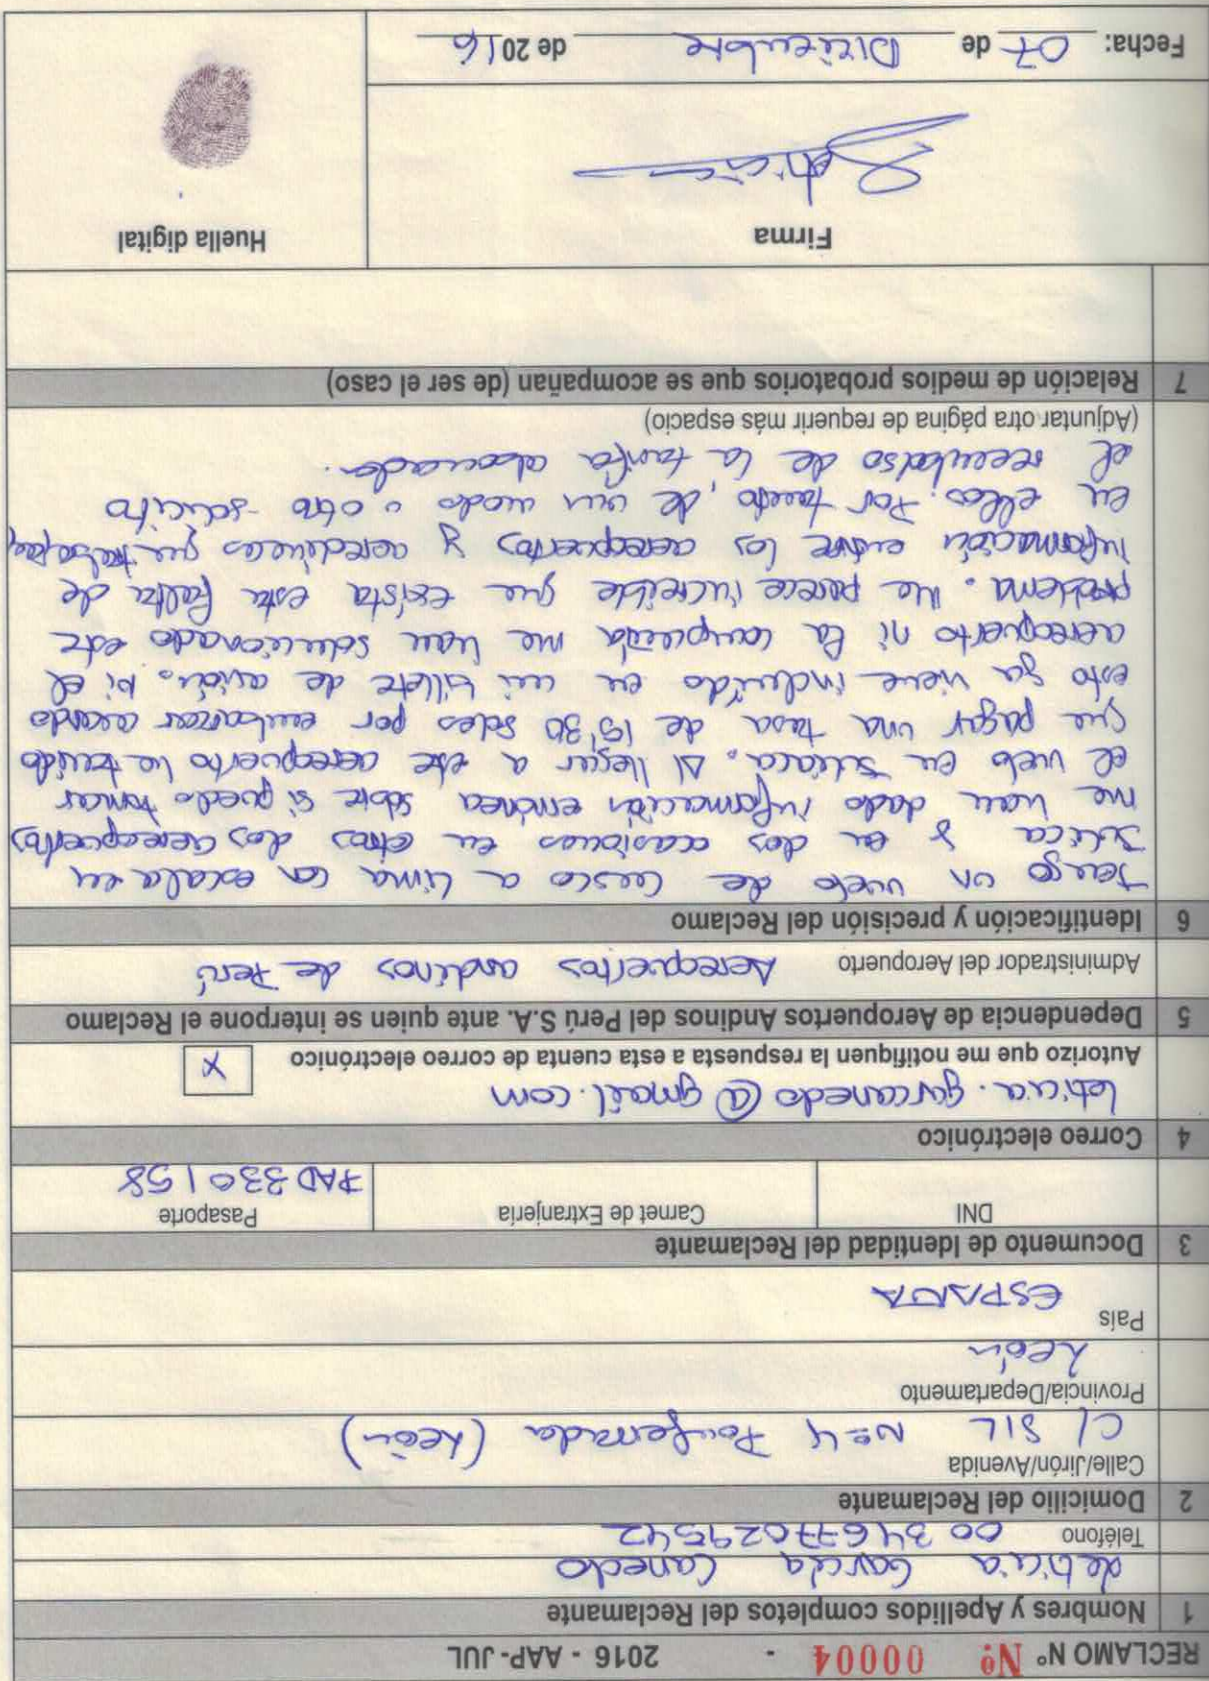 RECLAMO N° Nº 00004 - 2016 - AAP-JUL
1 Nombres y Apellidos completos del Reclamante
Leticia García Canedo
Teléfono 00 34677029542
2 Domicilio del Reclamante
Calle/Jirón/Avenida
C/ SIL Nº4 Ponferrada (León)
Provincia/Departamento
León
País
ESPAÑA
3 Documento de Identidad del Reclamante
DNI Carnet de Extranjería Pasaporte
PAD330158
4 Correo electrónico
leticia.garcanedo@gmail.com
Autorizo que me notifiquen la respuesta a esta cuenta de correo electrónico X
5 Dependencia de Aeropuertos Andinos del Perú S.A. ante quien se interpone el Reclamo
Administrador del Aeropuerto Aeropuertos andinos de Perú
6 Identificación y precisión del Reclamo
Tengo un vuelo de Cusco a Lima con escala en
Juliaca y en dos ocasiones en otros dos aeropuertos
me han dado información errónea sobre si puedo tomar
el vuelo en Juliaca. Al llegar a este aeropuerto he tenido
que pagar una tasa de 15,30 soles por embarcar cuando
esto ya viene incluido en mi billete de avión. Ni el
aeropuerto ni la compañía me han solucionado este
problema. Me parece increíble que exista esta falta de
información entre los aeropuertos y aerolíneas que trabajan
en ellos. Por tanto, de un modo u otro solicito
el reembolso de la tarifa abonada.
(Adjuntar otra página de requerir más espacio)
7 Relación de medios probatorios que se acompañan (de ser el caso)
Firma Huella digital
Leticia
Fecha: 07 de Diciembre de 2016